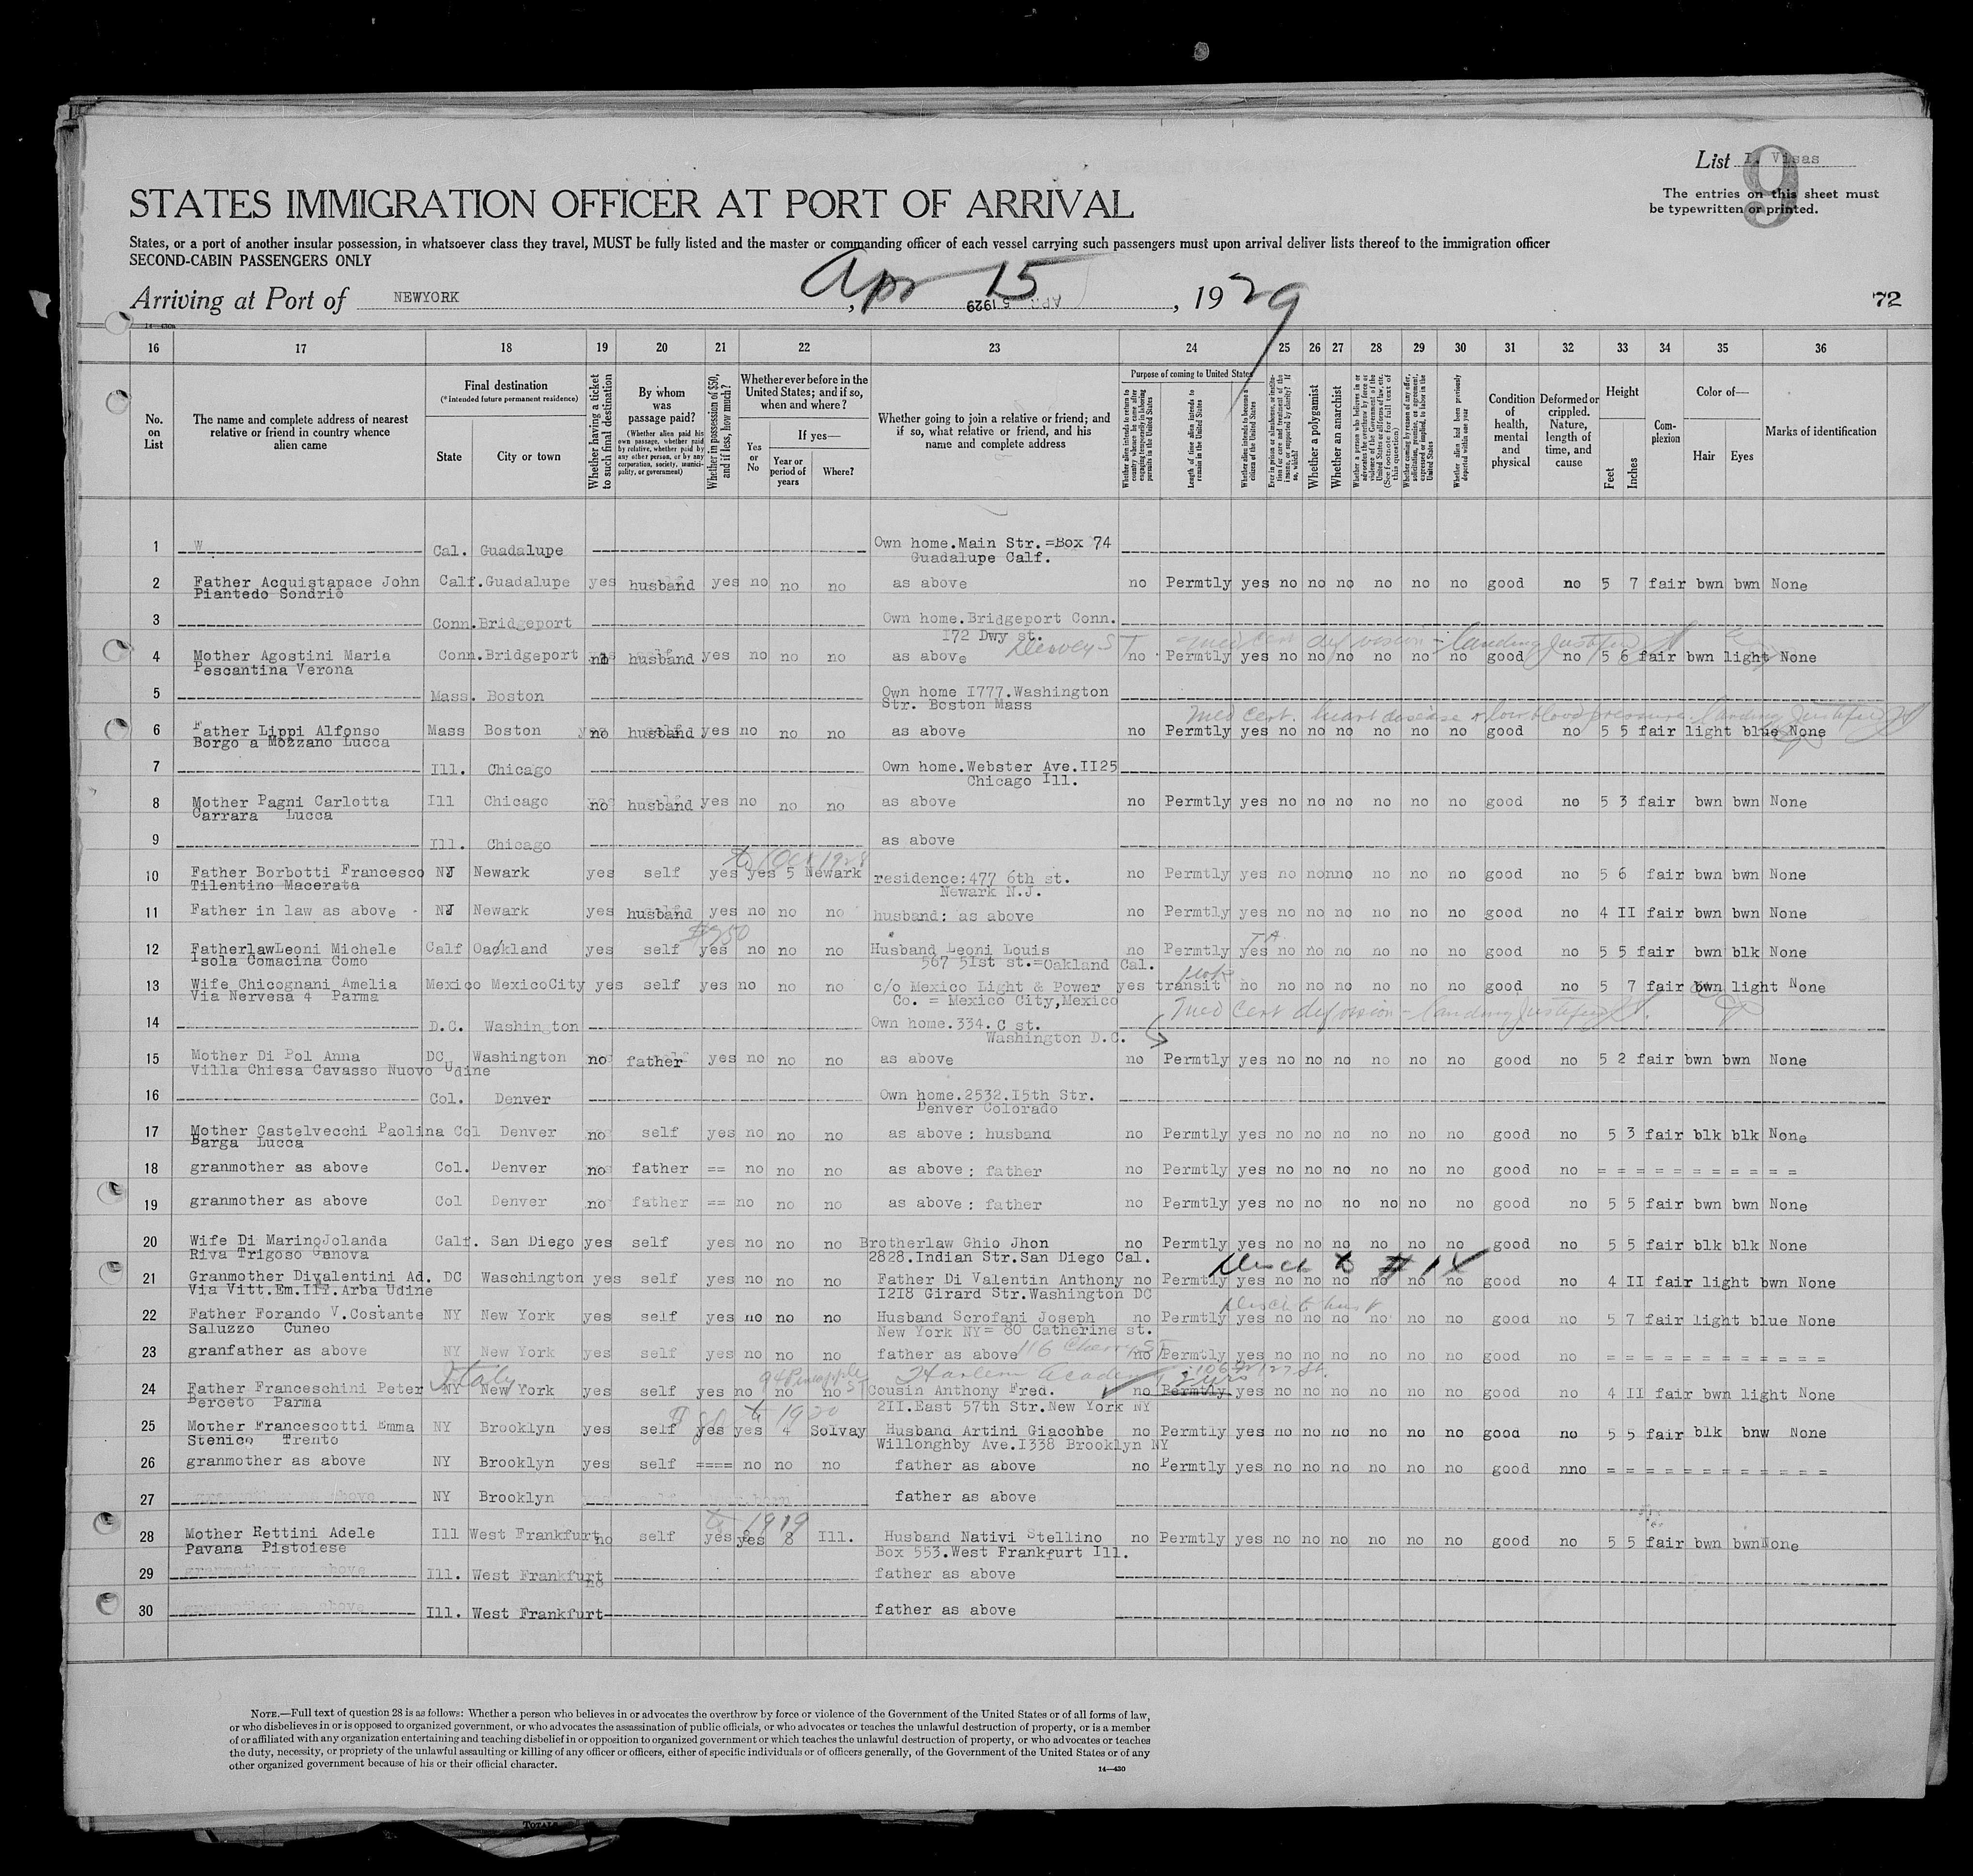 List I. Visas
9
The entries on this sheet must
be typewritten or printed.
STATES IMMIGRATION OFFICER AT PORT OF ARRIVAL
States, or a port of another insular possession, in whatsoever class they travel, MUST be fully listed and the master or commanding officer of each vessel carrying such passengers must upon arrival deliver lists thereof to the immigration officer
SECOND-CABIN PASSENGERS ONLY
Arriving at Port of NEWYORK, Apr 15, 1929
72
16 17 18 19 20 21 22 23 24 25 26 27 28 29 30 31 32 33 34 35 36
No. on List
The name and complete address of nearest relative or friend in country whence alien came
Final destination
(* intended future permanent residence)
State
City or town
Whether having a ticket to such final destination
By whom was passage paid?
(Whether alien paid his own passage, whether paid by relative, whether paid by any other person, or by any corporation, society, municipality, or government)
Whether in possession of $50, and if less, how much?
Whether ever before in the United States; and if so, when and where?
Yes or No
If yes—
Year or period of years
Where?
Whether going to join a relative or friend; and if so, what relative or friend, and his name and complete address
Purpose of coming to United States
Whether alien intends to return to country whence he came after engaging temporarily in laboring pursuits in the United States
Length of time alien intends to remain in the United States
Whether alien intends to become a citizen of the United States
Whether a polygamist
Whether an anarchist
Condition of health, mental and physical
Deformed or crippled. Nature, length of time, and cause
Height
Feet
Inches
Complexion
Color of—
Hair
Eyes
Marks of identification
1 W Cal. Guadalupe Own home.Main Str.=Box 74
Guadalupe Calf.
2 Father Acquistapace John Calf. Guadalupe yes husband yes no no no as above no Permtly yes no no no no no no good no 5 7 fair bwn bwn None
Piantedo Sondrio
3 Conn. Bridgeport Own home.Bridgeport Conn.
I72 Dwy st.
Dewey ST med cert def vision - landing justified
4 Mother Agostini Maria Conn. Bridgeport no husband yes no no no as above no Permtly yes no no no no no no good no 5 6 fair bwn light None
Pescantina Verona
5 Mass. Boston Own home I777.Washington
Str. Boston Mass
med cert. heart disease & low blood pressure landing justified
6 Father Lippi Alfonso Mass Boston no husband yes no no no as above no Permtly yes no no no no no no good no 5 5 fair light blue None
Borgo a Mozzano Lucca
7 Ill. Chicago Own home.Webster Ave.II25
Chicago Ill.
8 Mother Pagni Carlotta Ill Chicago no husband yes no no no as above no Permtly yes no no no no no no good no 5 3 fair bwn bwn None
Carrara Lucca
9 Ill. Chicago as above
Oct 1928
10 Father Borbotti Francesco NJ Newark yes self yes yes 5 Newark residence:477 6th st. no Permtly yes no no nno no no no good no 5 6 fair bwn bwn None
Tilentino Macerata Newark N.J.
11 Father in law as above NJ Newark yes husband yes no no no husband: as above no Permtly yes no no no no no no good no 4 II fair bwn bwn None
12 FatherlawLeoni Michele Calf Oakland yes self yes no no no Husband Leoni Louis no Permtly yes no no no no no no good no 5 5 fair bwn blk None
Isola Comacina Como 567 5Ist st.=Oakland Cal.
13 Wife Chicognani Amelia Mexico MexicoCity yes self yes no no no c/o Mexico Light & Power yes transit no no no no no no no good no 5 7 fair bwn light None
Via Nervesa 4 Parma Co. = Mexico City,Mexico
med cert def vision - landing justified
14 D.C. Washington Own home.334.C st.
Washington D.C.
15 Mother Di Pol Anna DC Washington no father yes no no no as above no Permtly yes no no no no no no good no 5 2 fair bwn bwn None
Villa Chiesa Cavasso Nuovo Udine
16 Col. Denver Own home.2532.I5th Str.
Denver Colorado
17 Mother Castelvecchi Paolina Col Denver no self yes no no no as above: husband no Permtly yes no no no no no no good no 5 3 fair blk blk None
Barga Lucca
18 granmother as above Col. Denver no father == no no no as above: father no Permtly yes no no no no no no good no = = = = = = = = = = =
19 granmother as above Col Denver no father == no no no as above: father no Permtly yes no no no no no no good no 5 5 fair bwn bwn None
20 Wife Di MarinoJolanda Calf. San Diego yes self yes no no no Brotherlaw Ghio Jhon no Permtly yes no no no no no no good no 5 5 fair blk blk None
Riva Trigoso Genova 2828.Indian Str.San Diego Cal.
21 Granmother Divalentini Ad. DC Waschington yes self yes no no no Father Di Valentin Anthony no Permtly yes no no no no no no good no 4 II fair light bwn None
Via Vitt.Em.III.Arba Udine I2I8 Girard Str.Washington DC
22 Father Forando V.Costante NY New York yes self yes no no no Husband Scrofani Joseph no Permtly yes no no no no no no good no 5 7 fair light blue None
Saluzzo Cuneo New York NY= 80 Catherine st.
116 Cherry ST
23 granfather as above NY New York yes self yes no no no father as above no Permtly yes no no no no no no good no = = = = = = = = = = =
Italy 94 Pineapple ST Harlem Academy 2 yrs
24 Father Franceschini Peter NY New York yes self yes no no no Cousin Anthony Fred. no Permtly yes no no no no no no good no 4 II fair bwn light None
Berceto Parma 2II.East 57th Str.New York NY
1920
25 Mother Francescotti Emma NY Brooklyn yes self yes yes 4 Solvay Husband Artini Giacobbe no Permtly yes no no no no no no good no 5 5 fair blk bnw None
Stenico Trento Willonghby Ave.I338 Brooklyn NY
26 granmother as above NY Brooklyn yes self ==== no no no father as above no Permtly yes no no no no no no good nno = = = = = = = = = = = =
27 NY Brooklyn father as above
1919
28 Mother Rettini Adele Ill West Frankfurt no self yes yes 8 Ill. Husband Nativi Stellino no Permtly yes no no no no no no good no 5 5 fair bwn bwn None
Pavana Pistoiese Box 553.West Frankfurt Ill.
29 Ill. West Frankfurt no father as above
30 Ill. West Frankfurt father as above
NOTE.—Full text of question 28 is as follows: Whether a person who believes in or advocates the overthrow by force or violence of the Government of the United States or of all forms of law,
or who disbelieves in or is opposed to organized government, or who advocates the assassination of public officials, or who advocates or teaches the unlawful destruction of property, or is a member
of or affiliated with any organization entertaining and teaching disbelief in or opposition to organized government or which teaches the unlawful destruction of property, or who advocates or teaches
the duty, necessity, or propriety of the unlawful assaulting or killing of any officer or officers, either of specific individuals or of officers generally, of the Government of the United States or of any
other organized government because of his or their official character.
14—430
TOTALS